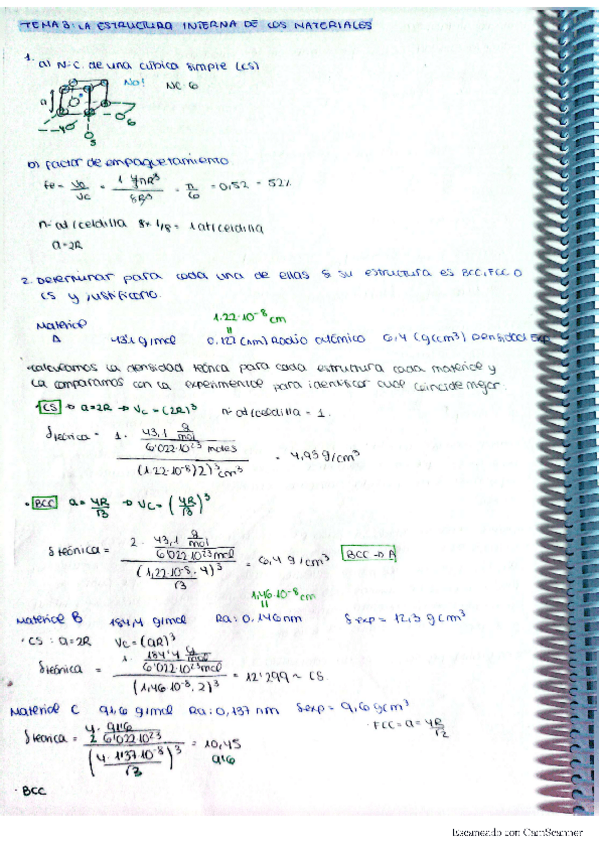 TEMA 3: LA ESTRUCTURA INTERNA DE LOS MATERIALES
1. a) N.C. de una cúbica simple (CS)
No! NC: 6
a
4
5
6
b) Factor de empaquetamiento
Fe = Va/Vc = 1 4/3πR³ / 8R³ = π/6 = 0,52 = 52%
nº at/celdilla 8 x 1/8 = 1 at/celdilla
a = 2R
2. Determinar para cada una de ellas si su estructura es BCC, FCC o
CS y justificarlo.
1.22·10⁻⁸ cm
Material
A 43.1 g/mol 0.122 (nm) Radio atómico 6,4 (g/cm³) Densidad Exp
Calculamos la densidad teórica para cada estructura cada material y
la comparamos con la experimental para identificar cual coincide mejor.
· CS → a=2R → Vc = (2R)³ nº at/celdilla = 1.
δteórica = 1 · 43,1 g/mol / 6'022·10²³ moles / (1.22·10⁻⁸)2)³ cm³ = 4,93 g/cm³
· BCC a = 4R/√3 → Vc = (4R/√3)³
δteórica = 2 · 43,1 g/mol / 6'022·10²³ mol / (1,22·10⁻⁸·4)³ / √3 = 6,4 g/cm³ BCC → A
1,46·10⁻⁸ cm
Material B 184,4 g/mol Ra: 0,146 nm δexp = 12,3 g cm³
· CS: a=2R Vc = (2R)³
δteórica = 1 · 184'4 g/mol / 6'022·10²³ mol / (1,46·10⁻⁸·2)³ = 12'299 ~ CS
Material C 91,6 g/mol Ra: 0,137 nm δexp = 9,6 g cm³
· FCC = a = 4R/√2
δteorica = 4 · 91'6 / 2 6'022·10²³ / (4·1'37·10⁻⁸ / √3)³ = 10,45
9'6
· BCC
Escaneado con CamScanner